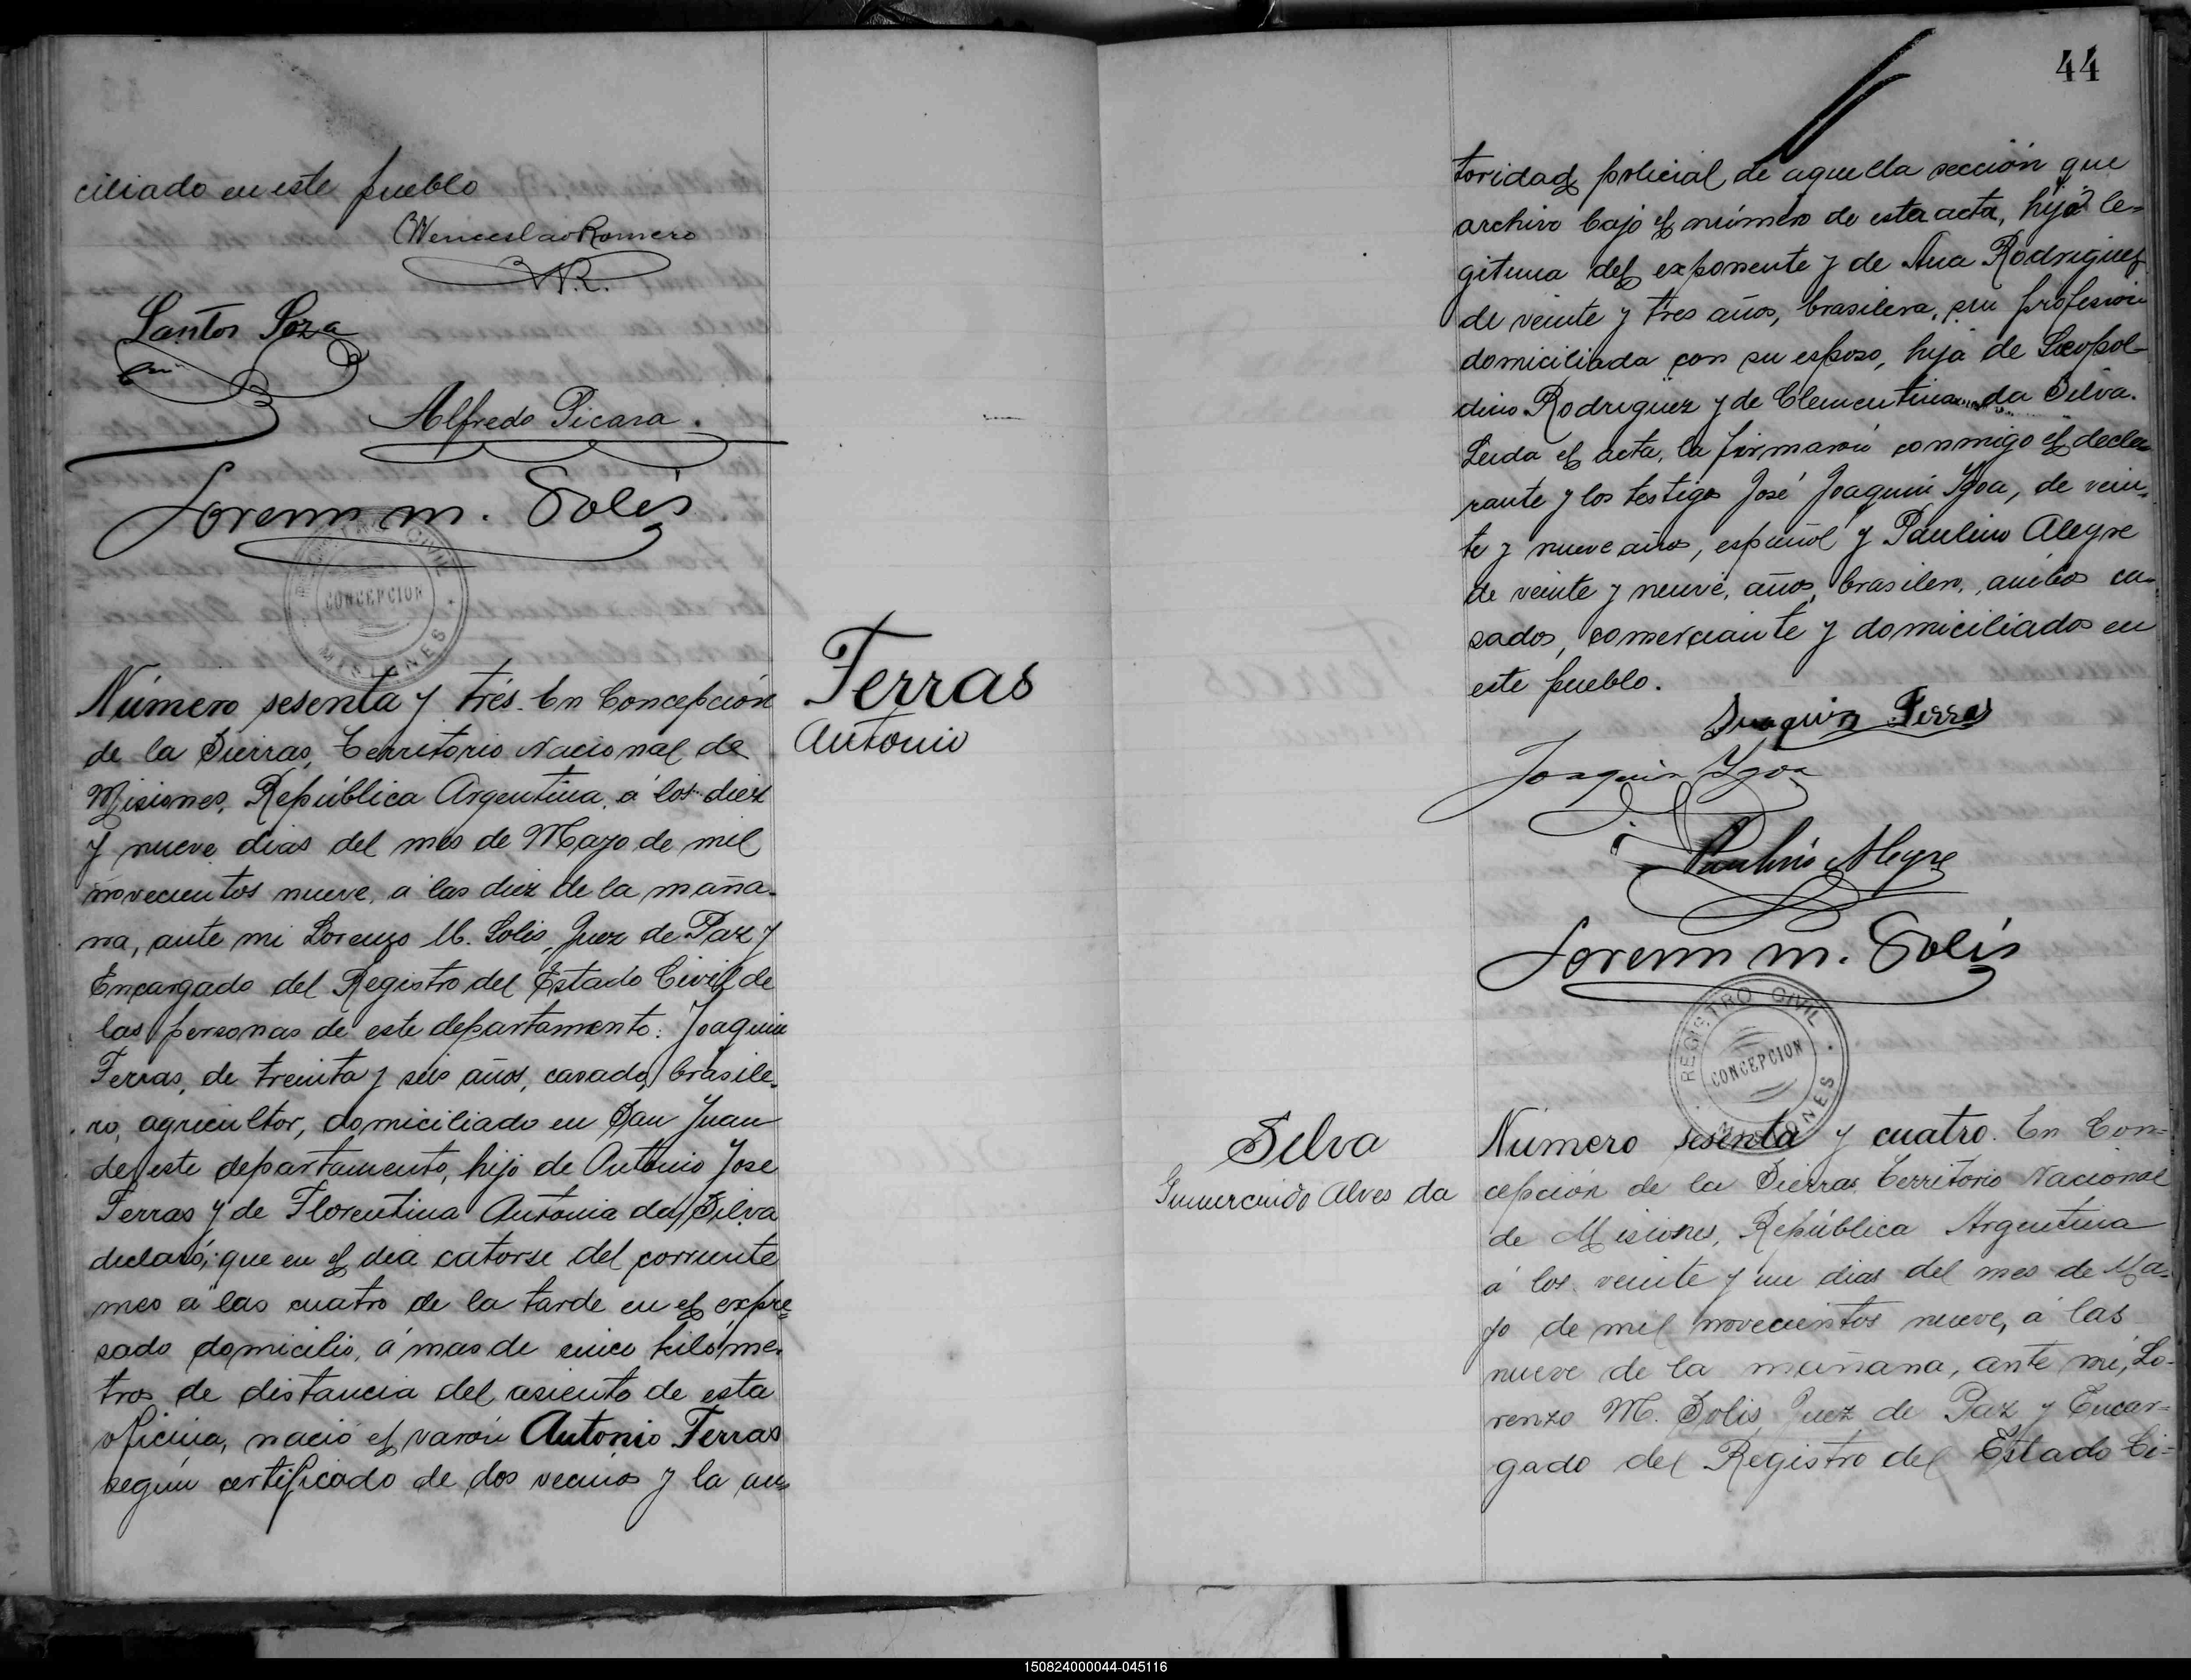 ciliado en este pueblo
Wenceslao Romero
W.R.
Santos Soza
Alfredo Picasa.
Lorenzo M. Solis
REGISTRO CIVIL
CONCEPCION
MISIONES
Número sesenta y trés. En Concepción
de la Sierras, Territorio Nacional de
Misiones, República Argentina, á los diez
y nueve dias del mes de Mayo de mil
novecientos nueve, a las diez de la maña-
na, ante mi Lorenzo M. Solis, Juez de Paz y
Encargado del Registro del Estado Civil de
las personas de este departamento: Joaquin
Ferras, de treinta y seis años, casado, brasile-
ro, agricultor, domiciliado en San Juan
de este departamento, hijo de Antonio Jose
Ferras y de Florentina Antonia da Silva
declaró; que en el dia catorse del corriente
mes a las cuatro de la tarde en el expre-
sado domicilio, á mas de cinco kilóme-
tros de distancia del asiento de esta
oficina, nació el varón Antonio Ferras
según certificado de dos vecinos y la au-
Ferras
Antonio
44
toridad policial de aquella sección que
archivo bajo el número de esta acta, hijo le-
gitima del exponente y de Ana Rodriguez
de veinte y tres años, brasilera, sin profesion
domiciliada con su esposo, hija de Leopol-
dino Rodriguez y de Clementina da Silva.
Leida el acta, la firmarón conmigo el decla-
rante y los testigos José Joaquin Ygoa, de vein-
te y nueve años, español y Paulino Alegre
de veinte y neuve, años, brasilero, ambos ca-
sados, comerciante y domiciliados en
este pueblo.
Juaquin Ferras
Joaquin Ygoa
Paulino Alegre
Lorenzo M. Solis
REGISTRO CIVIL
CONCEPCION
MISIONES
Silva
Gumercindo Alves da
Número sesenta y cuatro. En Con-
cepción de la Sierras Territorio Nacional
de Misiones, República Argentina
á los veinte y un dias del mes de Ma-
yo de mil novecientos nueve, á las
nueve de la mañana, ante mi, Lo-
renzo M. Solis Juez de Paz y Encar-
gado del Registro del Estado Ci-
150824000044-045116